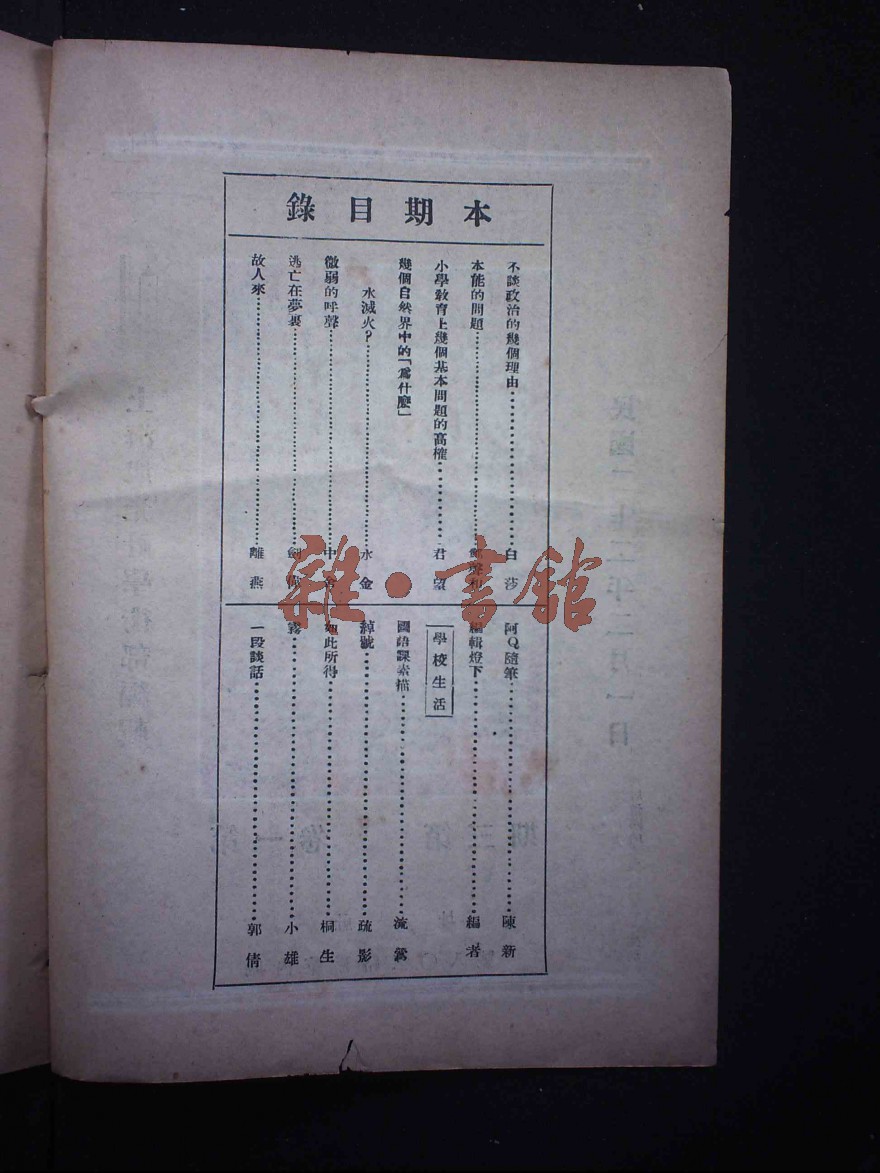 本期目錄
不談政治的幾個理由……………………白莎
本能的問題……………………
小學教育上幾個基本問題的商榷…………君望
幾個自然界中的「為什麼」
水滅火？……………………水金
微弱的呼聲……………………中
逃亡在夢裏……………………劍
故人來……………………離燕
阿Q隨筆……………………陳新
編輯燈下……………………編者
學校生活
國語課素描……………………流鶯
綽號……………………疏影
如此所得……………………桐生
霧……………………小雄
一段談話……………………郭倩
雜·書館